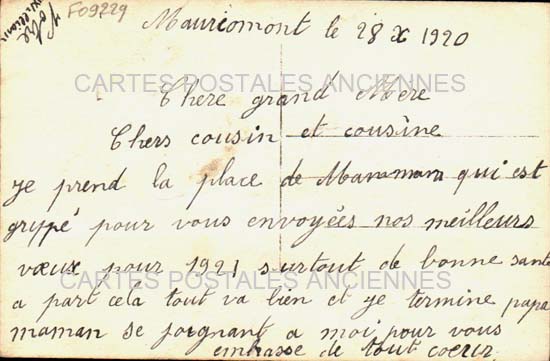 F09229
Votre
Mauriomont le 28 X 1920
CARTES POSTALES ANCIENNES
Chere grand Mère
Chers cousin et cousine
je prend la place de Maman qui est
grypé pour vous envoyées nos meilleurs
vœux pour 1921 surtout de bonne santé
CARTES POSTALES ANCIENNES
a part cela tout va bien et je termine papa
maman se joignant a moi pour vous
embrasse de tout coeur